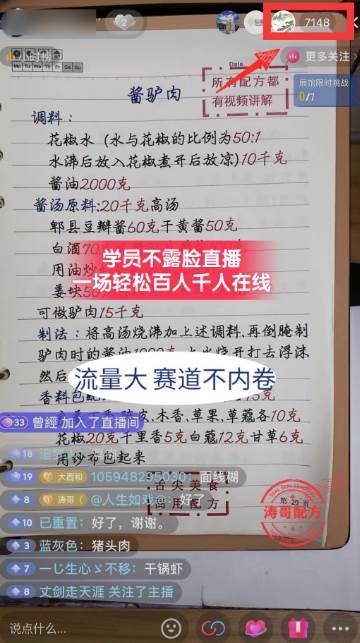 7148
小时榜
更多关注
展馆限时挑战
0/7
Date
酱驴肉
所有配方都
有视频讲解
调料:
花椒水(水与花椒的比例为50:1
水沸后放入花椒煮开后放凉)10千克
酱油2000克
酱汤原料:20千克高汤
郫县豆瓣酱60克干黄酱50克
白酒70
用油炒
姜块50
学员不露脸直播
一场轻松百人千人在线
可做驴肉15千克
制法:将高汤烧沸加上述调料,再倒腌制
驴肉时的酱油1000克
然后
流量大 赛道不内卷
香料包
木香,草果,草蔻各10克
花椒20克千里香5克白蔻12克甘草6克
用纱布包起来
33 曾經 加入了直播间
19 大酋和 105948295030:面线糊
8 涛哥 (@人生如戏@:好了
10 已重置:好了,谢谢。
3 蓝灰色:猪头肉
8 一じ生心ゞ不移:干锅虾
8 丈剑走天涯 关注了主播
舌尖美食
商用配方
涛哥配方
说点什么...